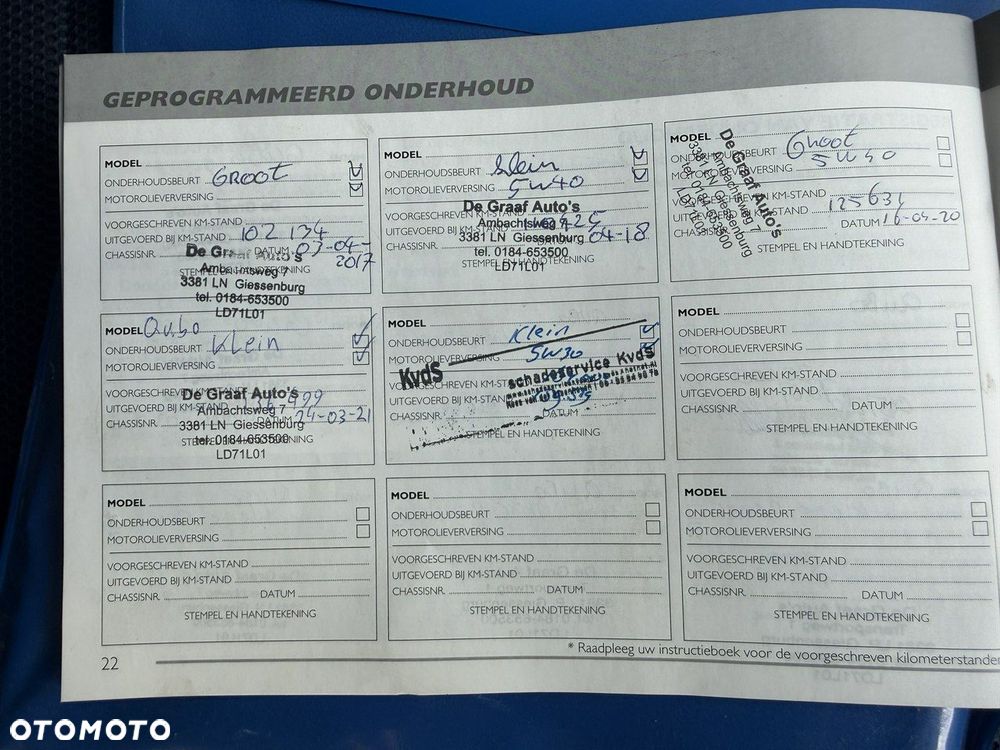 GEPROGRAMMEERD ONDERHOUD
MODEL
ONDERHOUDSBEURT GROOT
MOTOROLIEVERVERSING
VOORGESCHREVEN KM-STAND
UITGEVOERD BIJ KM-STAND 102 134
CHASSISNR. DATUM 03-04-2017
STEMPEL EN HANDTEKENING
De Graaf Auto's
Ambachtsweg 7
3381 LN Giessenburg
tel. 0184-653500
LD71L01
MODEL
ONDERHOUDSBEURT Klein
MOTOROLIEVERVERSING 5W40
VOORGESCHREVEN KM-STAND
UITGEVOERD BIJ KM-STAND
CHASSISNR. 04-18
STEMPEL EN HANDTEKENING
De Graaf Auto's
Ambachtsweg 7
3381 LN Giessenburg
tel. 0184-653500
LD71L01
MODEL
ONDERHOUDSBEURT Groot
MOTOROLIEVERVERSING 5W40
VOORGESCHREVEN KM-STAND
UITGEVOERD BIJ KM-STAND 125631
DATUM 16-04-20
STEMPEL EN HANDTEKENING
De Graaf Auto's
Ambachtsweg 7
3381 LN Giessenburg
tel. 0184-653500
LD71L01
MODEL Qubo
ONDERHOUDSBEURT Klein
MOTOROLIEVERVERSING
VOORGESCHREVEN KM-STAND
UITGEVOERD BIJ KM-STAND
CHASSISNR. DATUM 24-03-21
STEMPEL EN HANDTEKENING
De Graaf Auto's
Ambachtsweg 7
3381 LN Giessenburg
tel. 0184-653500
LD71L01
MODEL
ONDERHOUDSBEURT Klein
MOTOROLIEVERVERSING 5W30
VOORGESCHREVEN KM-STAND
UITGEVOERD BIJ KM-STAND
CHASSISNR. DATUM
STEMPEL EN HANDTEKENING
KvdS
schadeservice KvdS
MODEL
ONDERHOUDSBEURT
MOTOROLIEVERVERSING
VOORGESCHREVEN KM-STAND
UITGEVOERD BIJ KM-STAND
CHASSISNR. DATUM
STEMPEL EN HANDTEKENING
MODEL
ONDERHOUDSBEURT
MOTOROLIEVERVERSING
VOORGESCHREVEN KM-STAND
UITGEVOERD BIJ KM-STAND
CHASSISNR. DATUM
STEMPEL EN HANDTEKENING
MODEL
ONDERHOUDSBEURT
MOTOROLIEVERVERSING
VOORGESCHREVEN KM-STAND
UITGEVOERD BIJ KM-STAND
CHASSISNR. DATUM
STEMPEL EN HANDTEKENING
MODEL
ONDERHOUDSBEURT
MOTOROLIEVERVERSING
VOORGESCHREVEN KM-STAND
UITGEVOERD BIJ KM-STAND
CHASSISNR. DATUM
STEMPEL EN HANDTEKENING
22
* Raadpleeg uw instructieboek voor de voorgeschreven kilometerstanden
OTOMOTO